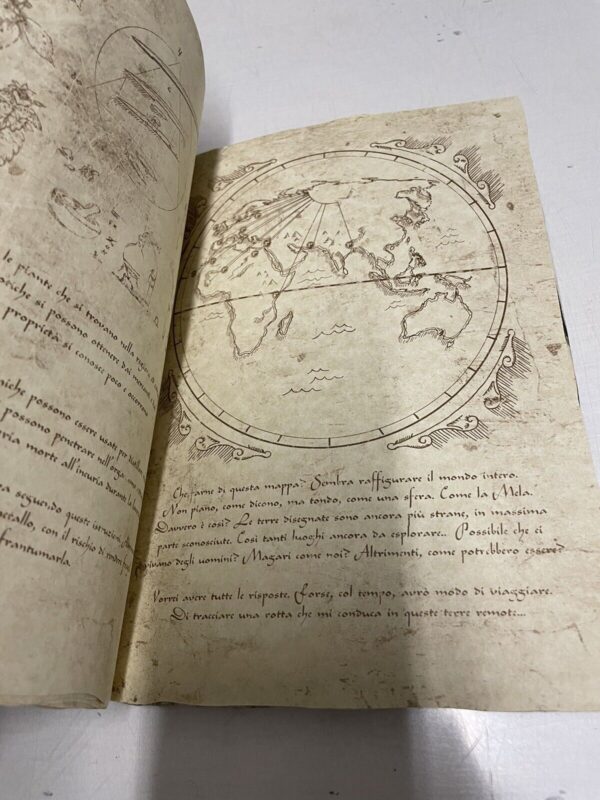 le piante che si trovano nella regione di
si possono ottenere dai
proprietà si conosce poco e
possono essere usate per
possono penetrare nell'
morte all'incuria durante la
seguendo queste istruzioni,
con il rischio di
frantumarla.
Che farne di questa mappa? Sembra raffigurare il mondo intero.
Non piano, come dicono, ma tondo, come una sfera. Come la Mela.
Davvero è così? Le terre disegnate sono ancora più strane, in massima
parte sconosciute. Così tanti luoghi ancora da esplorare.. Possibile che ci
vivano degli uomini? Magari come noi? Altrimenti, come potrebbero essere?
Vorrei avere tutte le risposte. Forse, col tempo, avrò modo di viaggiare.
Di tracciare una rotta che mi conduca in queste terre remote...